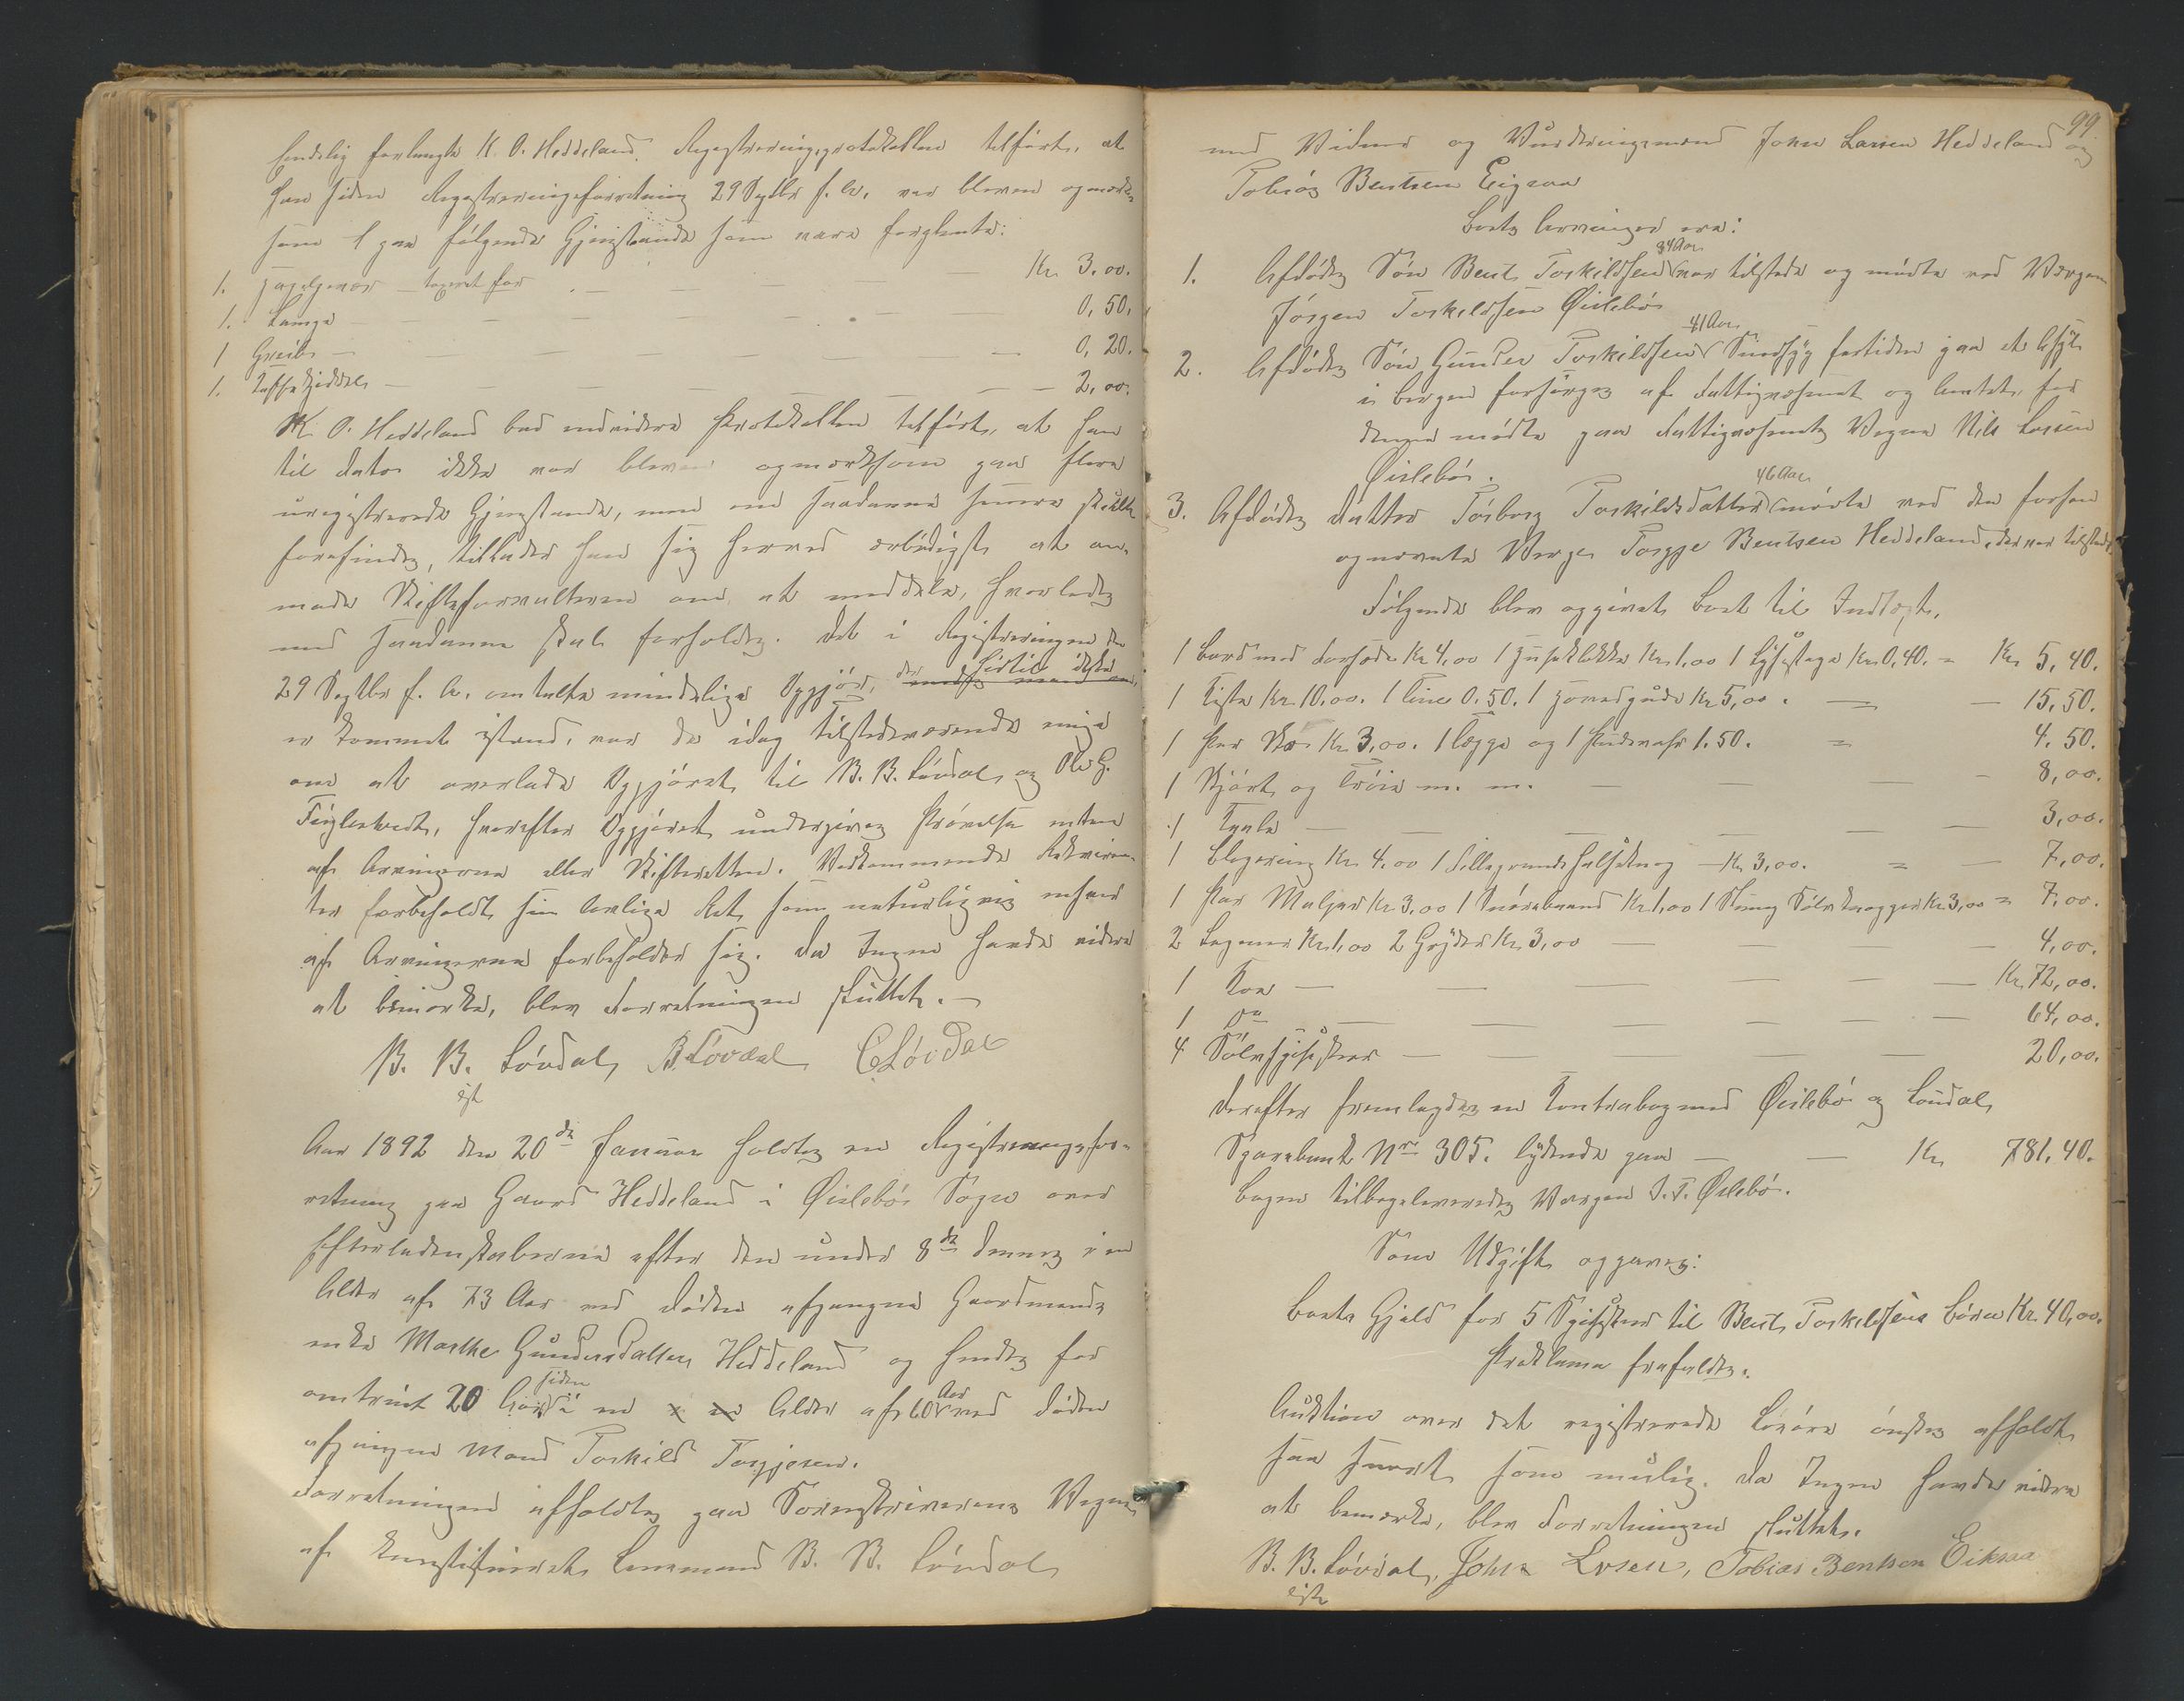 Endelig forlangte K. O. Heddeland Registreringsprotokollen tilført, at
han siden Registreringsforretning 29 Septbr f. A. var bleven opmærk-
som paa følgende Gjenstande som vare forglemte:
1. Hagelgevær taxeret for — — — Kr. 3.00.
1. Lampe — — — — — 0,50.
1 Greib — — — — — 0,20.
1. Kaffekjedel — — — — — 2,00.
K. O. Heddeland bad endvidere Protokollen tilført, at han
til dato ikke var bleven opmærksom paa flere
uregistrerede Gjenstande, men om saadanne senere skulle
forefindes, tillader han sig herved ærbødigst at an-
mode Skifteforvalteren om at meddele, hvorledes
med saadanne skal forholdes. Det i Registreringen den
29 Septbr f. A. omtalte mindelige Opgjør, der hidtil ikke
er kommet istand, var de idag tilstedeværende enige
om at overlade Opgjøret til B. B. Løvdal og Ole G.
Fuglestvedt, hvorefter Opgjøret undergives Prøvelse enten
af Arvingerne eller Skifteretten. Vedkommende Rekviren-
ter forbeholdt sin lovlige Ret, som naturligvis enhver
af Arvingerne forbeholder sig. Da Ingen havde videre
at bemærke, blev Forretningen sluttet. —
B. B. Løvdal, B Løvdal C Løvdal
cst
Aar 1892 den 20de Januar holdtes en Registreringsfor-
retning paa Gaard Heddeland i Øislebø Sogn over
Efterladenskaberne efter den under 8de dennes i en
Alder af 73 Aar ved Døden afgangne Gaardmands
enke Marthe Gundersdatter Heddeland og hendes for
omtrent 20 Aar siden i en Alder af 60 Aar ved Døden
afgangne Mand Torkild Torgjesen.
Forretningen afholdtes paa Sorenskriverens Vegne
af konstitueret Lensmand B. B. Løvdal
99.
med Vidner og Vurderingsmænd John Larsen Heddeland og
Tobias Bentsen Eigeaa
Boets Arvinger ere:
1. Afdødes Søn Bent Torkildsen 34 Aar var tilstede og mødte ved Værgen
Jørgen Torkildsen Øislebø
2. Afdødes Søn Gunder Torkildsen 41 Aar Sindsyg fortiden paa et Asyl
i Bergen forsørges af Fattigvæsenet og Amtet, for
denne mødte paa Fattigvæsenets Vegne Nils Larsen
Øislebø.
3. Afdødes Datter Torborg Torkildsdatter 46 Aar mødte ved den forhen
opnævnte Værge Torgje Bentsen Heddeland, der var tilstede
Følgende blev opgivet Boet til Indtægt.
1 Bord med Forhøde Kr 4,00 1 Huseklokke Kr 1,00 1 Lysestage Kr 0,40. = Kr 5,40.
1 Kiste Kr. 10.00. 1 Tine 0.50. 1 Hovedpude Kr 5,00. — — 15,50.
1 Par Sko Kr 3,00. 1 Lægge og 1 Pudevahr 1.50. = 4.50.
1 Skjørt og Trøie m. m. — — — 8,00.
1 Kaabe — — — — — 3,00.
1 Klogering Kr. 4.00 1 Sillegrands Halstøiog — Kr 3,00. = — 7,00.
1 Par Maljer Kr. 3,00 1 Snørebaand Kr 1,00 1 Stang Sølvknapper Kr. 3,00 = 7,00.
2 Lagener Kr. 1,00 2 Gryder Kr. 3,00 — — — 4,00.
1 Koe — — — — — Kr. 72,00.
1 Do — — — — — 64,00.
4 Sølvspiseskeer — — — — 20,00.
Derefter fremlagdes en Kontrabog med Øislebø og Laudal
Sparebank Nro 305. lydende paa — — Kr 781.40.
Bogen tilbageleveredes Værgen J. T. Øislebø.
Som Udgift opgaves:
Boets Gjæld for 5 Spiseskeer til Bent Torkildsens Børn Kr. 40,00.
Proklama frafaldtes.
Auktion over det registrerede Løsøre ønskes afholdt
saa snart som mulig. Da Ingen havde videre
at bemærke, blev Forretningen sluttet.
B. B. Løvdal, John Lrsen, Tobias Bentsen Eikeaa
cst